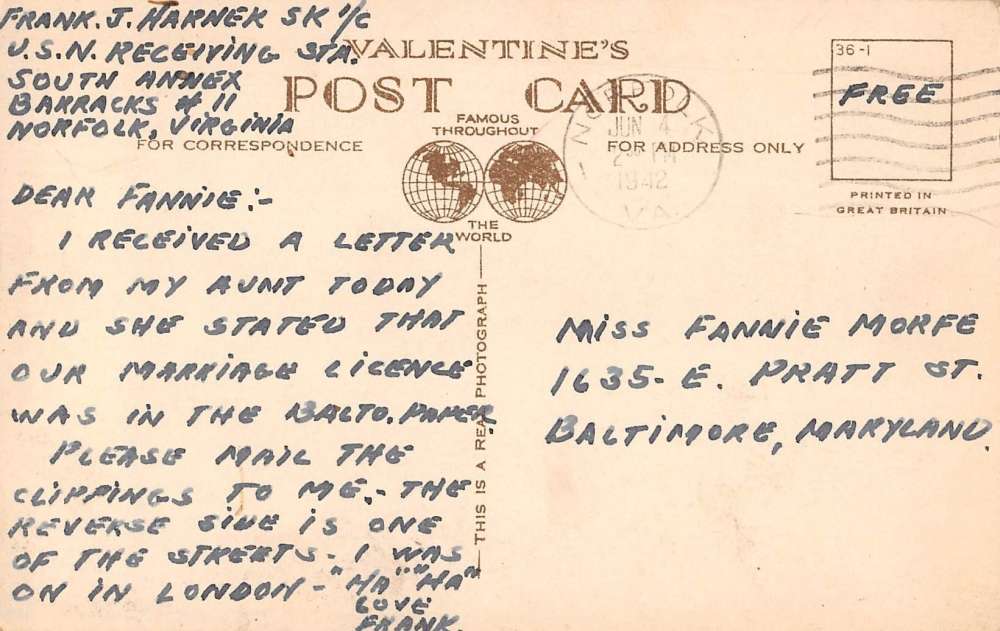 FRANK. J. HARNEK SK 1/C
U.S.N. RECEIVING STA.
SOUTH ANNEX
BARRACKS # 11
NORFOLK, VIRGINIA
VALENTINE'S
POST CARD
FAMOUS
THROUGHOUT
THE
WORLD
FOR CORRESPONDENCE
FOR ADDRESS ONLY
36-1
FREE
PRINTED IN
GREAT BRITAIN
NORFOLK
JUN 4
2 PM
1942
VA.
DEAR FANNIE:-
I RECEIVED A LETTER
FROM MY AUNT TODAY
AND SHE STATED THAT
OUR MARRIAGE LICENCE
WAS IN THE BALTO. PAPER.
PLEASE MAIL THE
CLIPPINGS TO ME.- THE
REVERSE SIDE IS ONE
OF THE STREETS- I WAS
ON IN LONDON - "HA" "HA"
LOVE
FRANK.
THIS IS A REAL PHOTOGRAPH
MISS FANNIE MORFE
1635- E. PRATT ST.
BALTIMORE, MARYLAND.